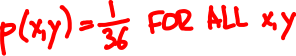 p(x,y) = 1/36 FOR ALL x,y